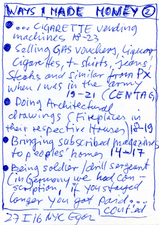 WAYS I MADE MONEY ②
... CIGARETTE vending
machines 18-23
• Selling GAS vouchers, Liquor
Cigarettes, t-shirts, jeans,
Steaks and similar from PX
when I was in the army
19-21 (CENTAG)
• Doing Architectural
drawings (Fireplaces in
their respective Houses) 18-19
• Bringing subscribed magazines
to peoples' homes 14-17
• Being soldier/drill sergeant
(in Germany we had con-
scription, if you stayed
longer you got paid...
cont'd
27 I 16 NYC Eger